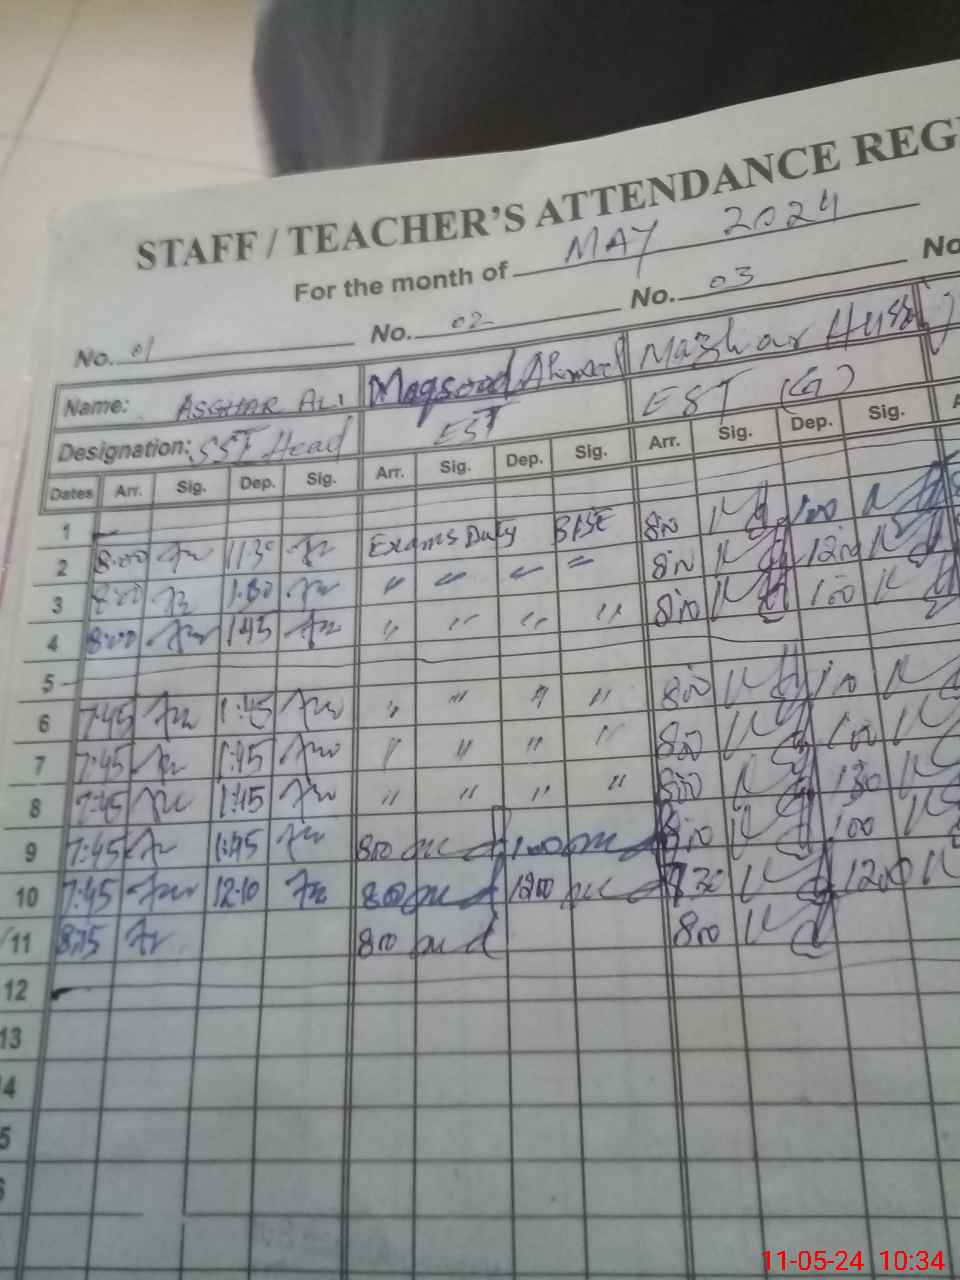 STAFF / TEACHER'S ATTENDANCE REG
For the month of MAY 2024
No. 01 No. 02 No. 03 No
Name: ASGHAR ALI Maqsood Ahmad Mazhar Huss
Designation: SST Head EST EST (G)
Dates Arr. Sig. Dep. Sig. Arr. Sig. Dep. Sig. Arr. Sig. Dep. Sig. A
1
2 8:00 11:30 Exams Duty BISE 800 100
3 8:00 1:30 " " " " 800 1200
4 8:00 1:45 " " " " 800 100
5
6 7:45 1:45 " " " " 800 100
7 7:45 1:45 " " " " 800 100
8 7:45 1:45 " " " " 800 130
9 7:45 1:45 800 100 800 100
10 7:45 12:10 800 1200 730 1200
11 8:15 800 800
12
13
4
5
11-05-24 10:34